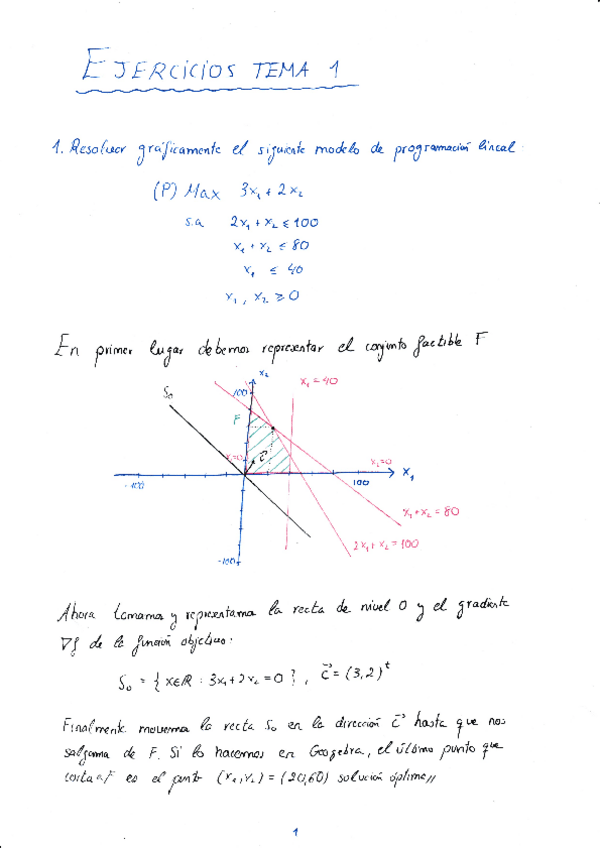 EJERCICIOS TEMA 1
1. Resolver gráficamente el siguiente modelo de programación lineal.
(P) Max 3x₁ + 2x₂
s.a 2x₁ + x₂ ≤ 100
x₁ + x₂ ≤ 80
x₁ ≤ 40
x₁, x₂ ≥ 0
En primer lugar debemos representar el conjunto factible F
S₀
x₂
x₁ = 40
100
F
x₁=0
c⃗
x₂=0
x₁
-100
100
x₁+x₂ = 80
2x₁+x₂ = 100
-100
Ahora tomamos y representamos la recta de nivel 0 y el gradiente
∇f de la función objetivo:
S₀ = { x∈ℝ : 3x₁+2x₂ = 0 }, c⃗ = (3,2)ᵗ
Finalmente movemos la recta S₀ en la dirección c⃗ hasta que nos
salgamos de F. Si lo hacemos en Geogebra, el último punto que
corta a F es el punto (x₁,x₂) = (20,60) solución óptima //
1